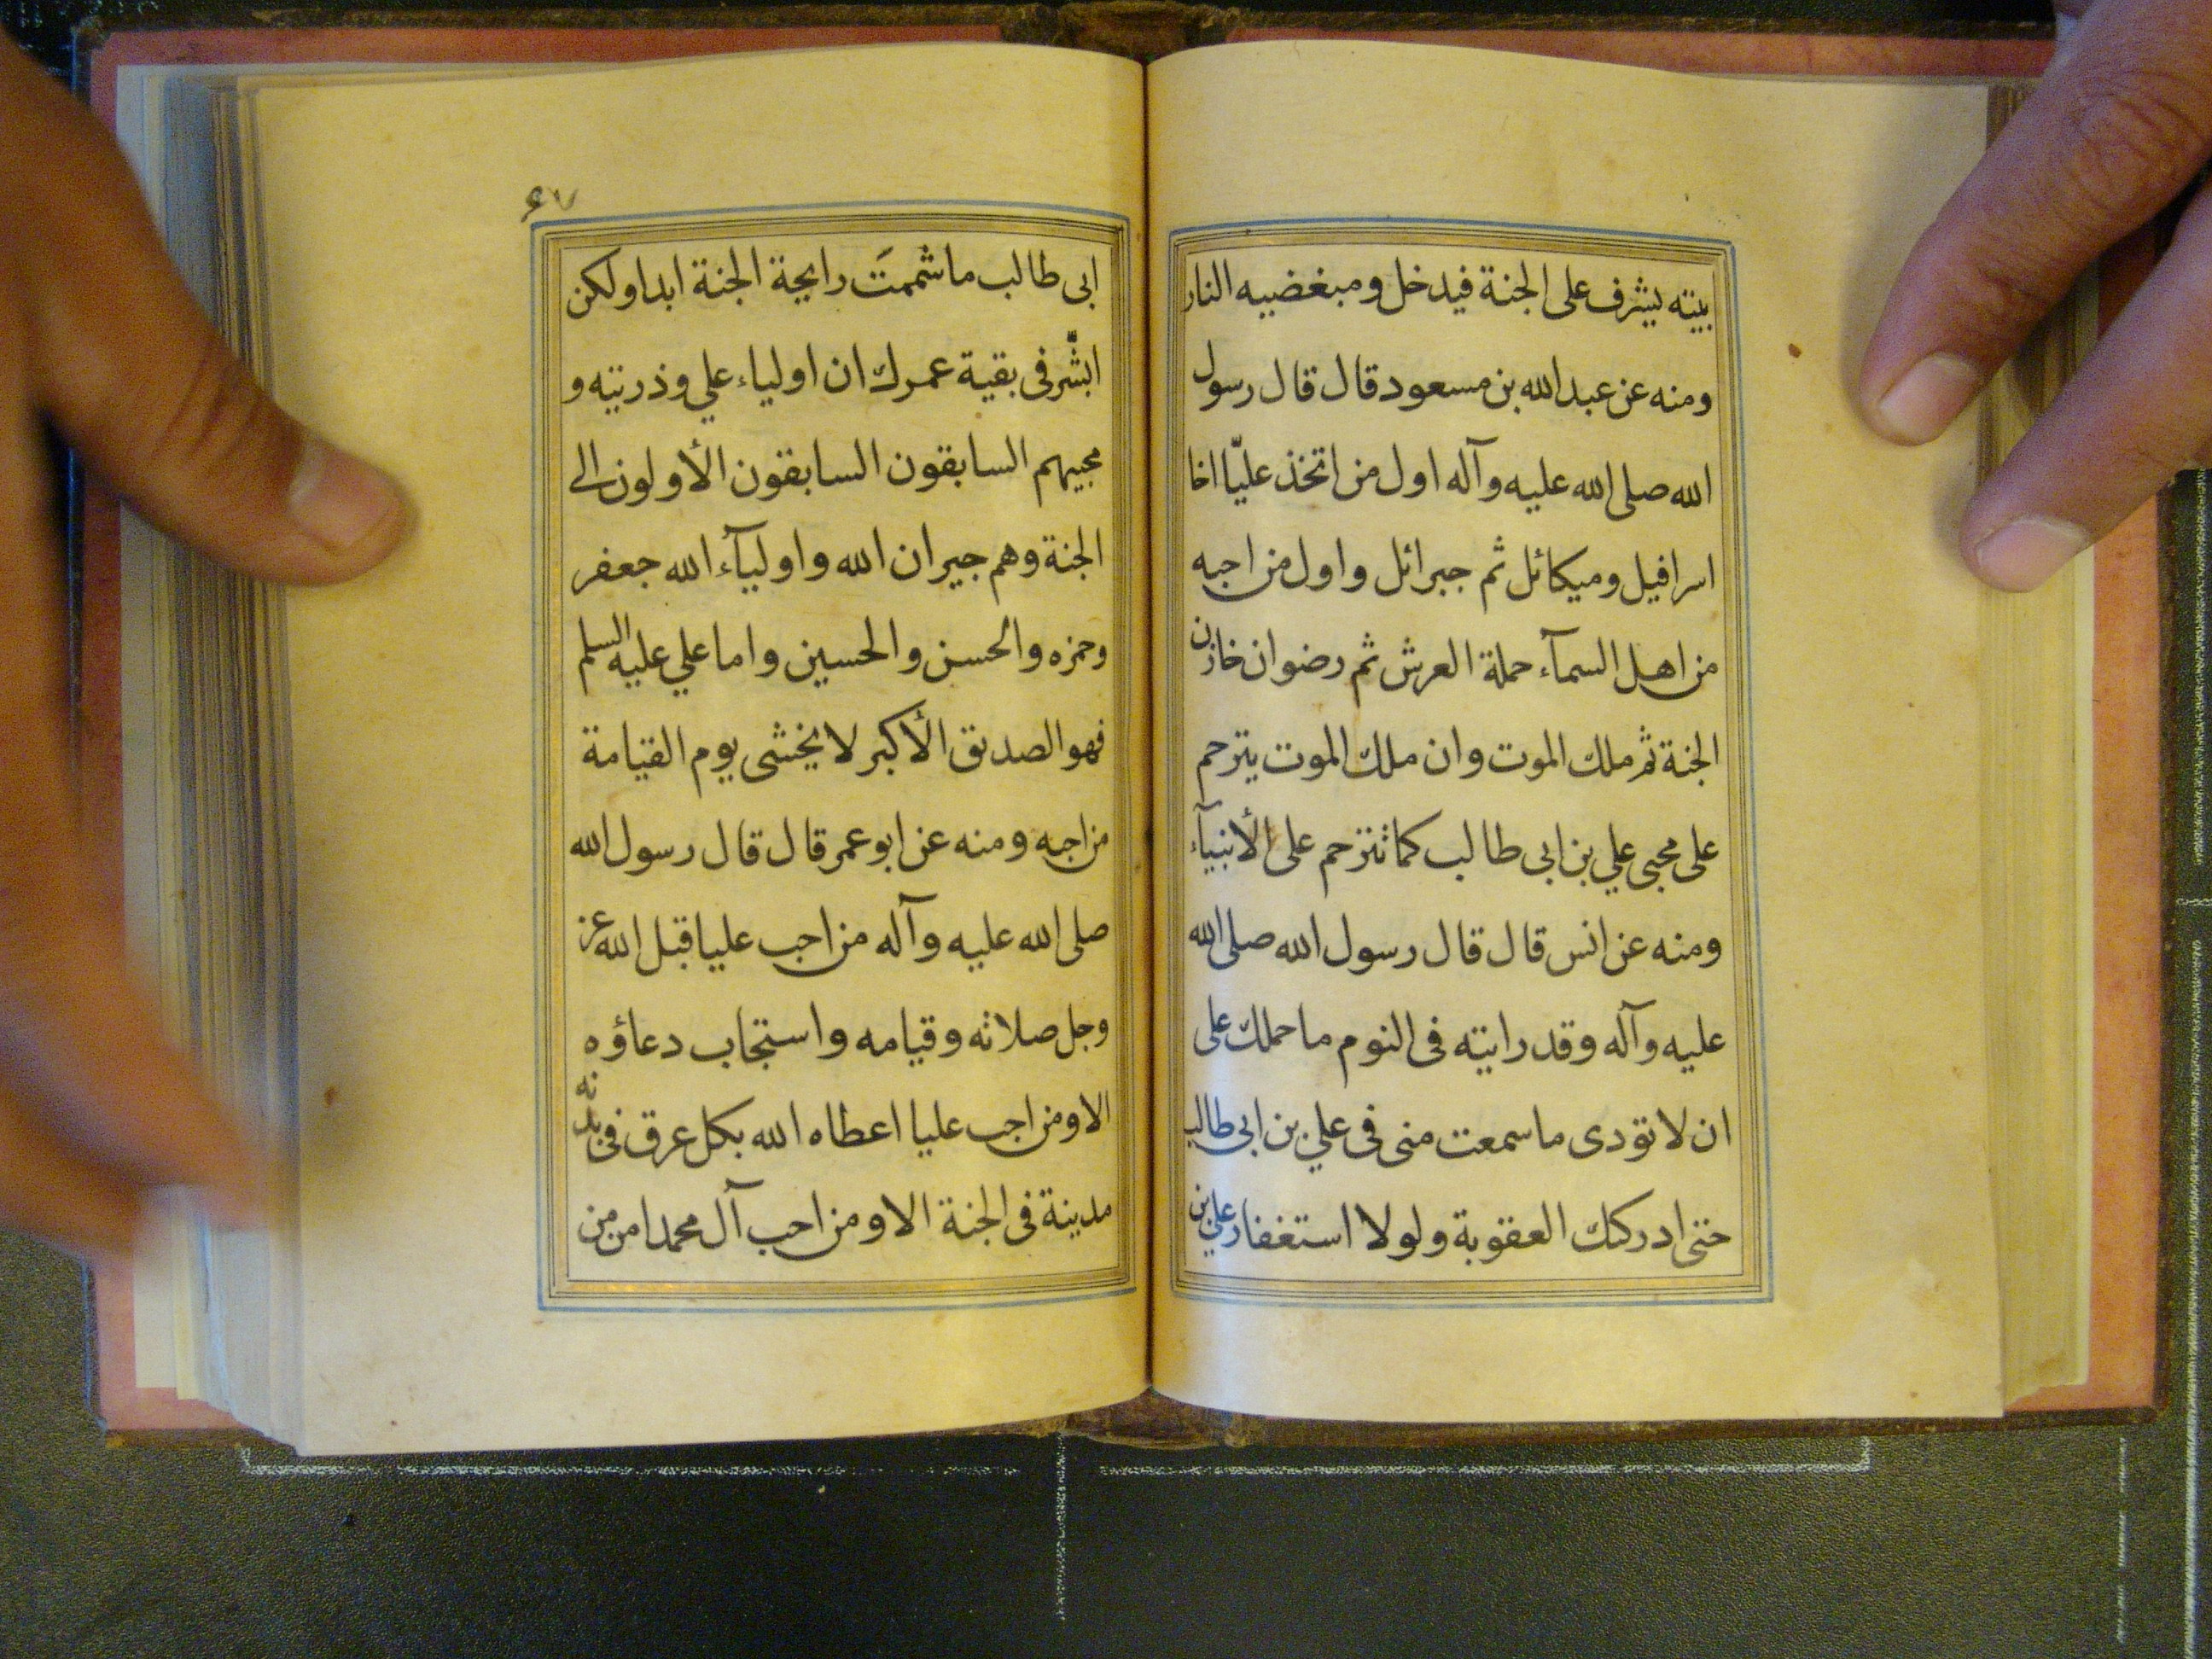 بيته يشرف على الجنة فيدخل ومبغضيه النار
ومنه عن عبد الله بن مسعود قال قال رسول
الله صلى الله عليه وآله اول من اتخذ عليّا اخا
اسرافيل وميكائل ثم جبرائل واول من احبه
من اهل السمآء حملة العرش ثم رضوان خازن
الجنة ثم ملك الموت وان ملك الموت يترحم
على محبى علي بن ابى طالب كما تترحم على الأنبيآء
ومنه عن انس قال قال رسول الله صلى الله
عليه وآله وقد رايته فى النوم ما حملك على
ان لا تودى ما سمعت منى فى علي بن ابى طالب
حتى ادركك العقوبة ولولا استغفار علي بن
٤٧
ابى طالب ما شممتَ رايحة الجنة ابدا ولكن
ابشّر فى بقية عمرك ان اولياء علي وذريته و
محبيهم السابقون السابقون الأولون الى
الجنة وهم جيران الله واوليآء الله جعفر
وحمزه والحسن والحسين واما علي عليه السلم
فهو الصديق الأكبر لا يخشى يوم القيامة
من احبه ومنه عن ابو عمر قال قال رسول الله
صلى الله عليه وآله من احب عليا قبل الله عز
وجل صلاته وقيامه واستجاب دعاؤه
الا ومن احب عليا اعطاه الله بكل عرق فى بدنه
مدينة فى الجنة الا ومن احب آل محمد امن من